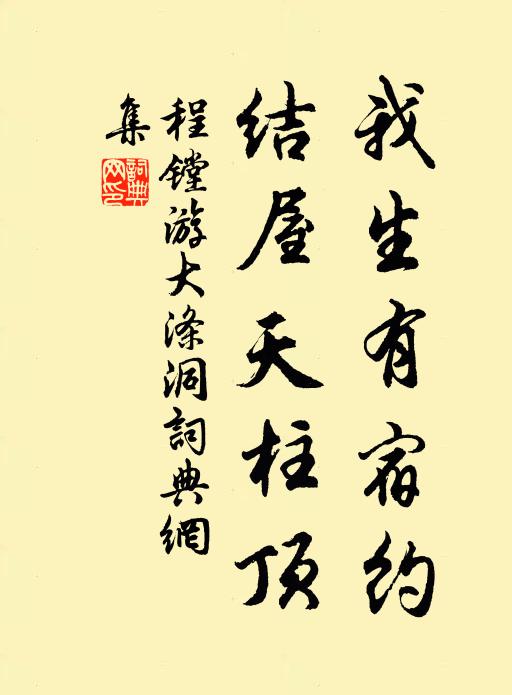 我生有宿約
结屋天柱顶
程鏜游大滌洞詞典網
集
詞典网印